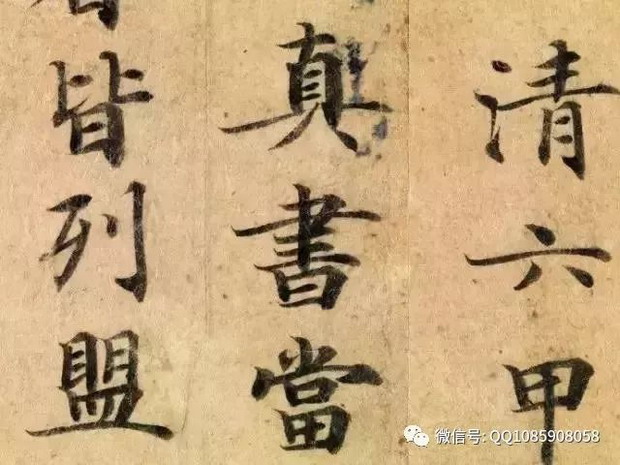 清六甲
真書當
皆列盟
微信号: QQ1085908058